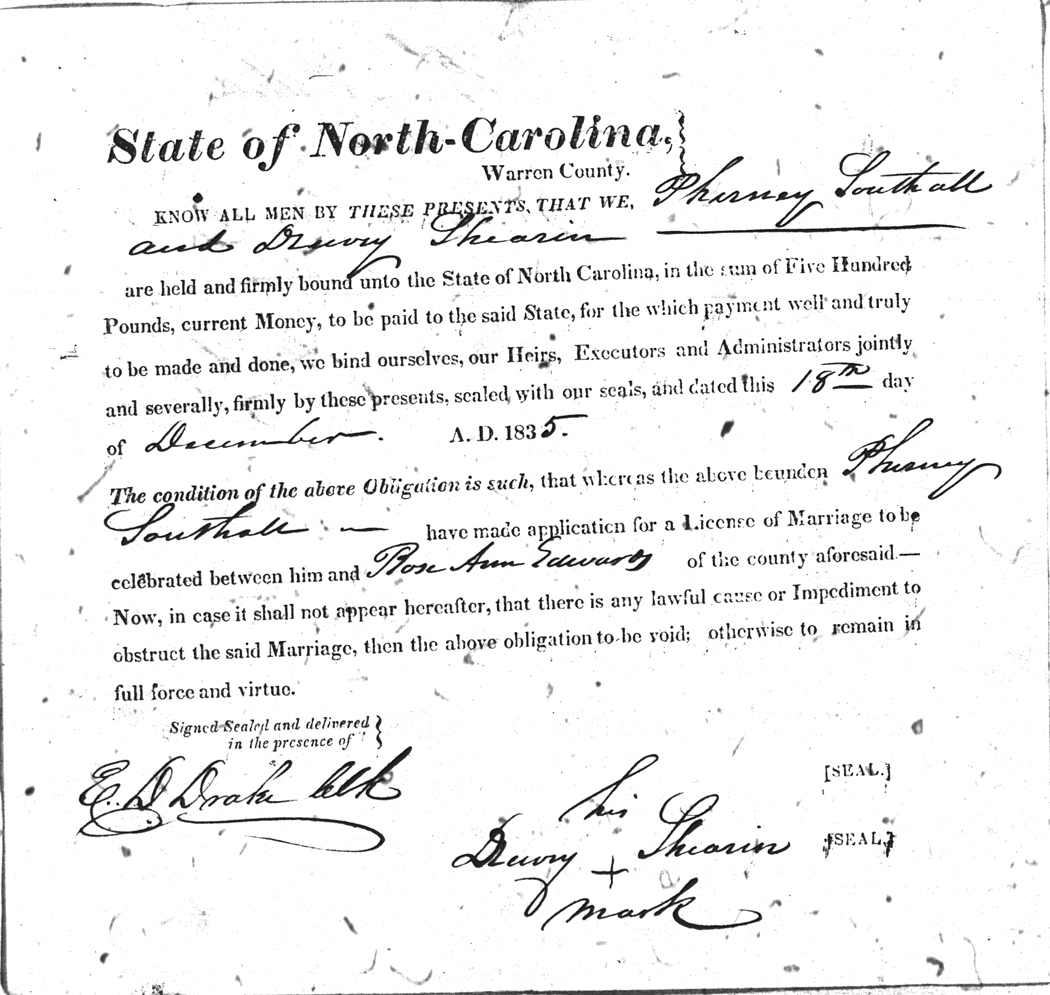 State of North-Carolina,
Warren County.
KNOW ALL MEN BY THESE PRESENTS, THAT WE, Pherney Southall
and Drewry Shearin
are held and firmly bound unto the State of North Carolina, in the sum of Five Hundred
Pounds, current Money, to be paid to the said State, for the which payment well and truly
to be made and done, we bind ourselves, our Heirs, Executors and Administrators jointly
and severally, firmly by these presents, sealed with our seals, and dated this 18th day
of December. A. D. 1835.
The condition of the above Obligation is such, that whereas the above bounden Pherney
Southall — have made application for a License of Marriage to be
celebrated between him and Rose Ann Edwards of the county aforesaid—
Now, in case it shall not appear hereafter, that there is any lawful cause or Impediment to
obstruct the said Marriage, then the above obligation to be void; otherwise to remain in
full force and virtue.
Signed Sealed and delivered
in the presence of
E. D Drake Clk
[SEAL.]
his
Drewry + Shearin [SEAL.]
mark